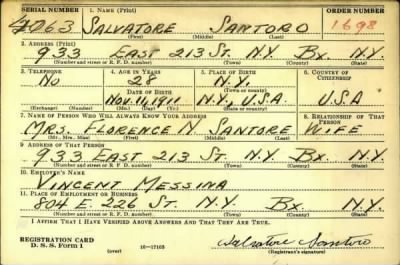 SERIAL NUMBER 1. NAME (Print) ORDER NUMBER
4063 SALVATORE SANTORO 1698
(First) (Middle) (Last)
2. ADDRESS (Print)
933 EAST 213 ST. N.Y. BX. N.Y.
(Number and street or R. F. D. number) (Town) (County) (State)
3. TELEPHONE 4. AGE IN YEARS 5. PLACE OF BIRTH 6. COUNTRY OF CITIZENSHIP
NO 28 N.Y.
(Town or county)
DATE OF BIRTH
NOV. 11, 1911 N.Y., U.S.A. U.S.A
(Exchange) (Number) (Mo.) (Day) (Yr.) (State or country)
7. NAME OF PERSON WHO WILL ALWAYS KNOW YOUR ADDRESS 8. RELATIONSHIP OF THAT PERSON
MRS. FLORENCE N. SANTORE WIFE
(Mr., Mrs., Miss) (First) (Middle) (Last)
9. ADDRESS OF THAT PERSON
933 EAST 213 ST. N.Y. BX. N.Y.
(Number and street or R. F. D. number) (Town) (County) (State)
10. EMPLOYER'S NAME
VINCENT MESSINA
11. PLACE OF EMPLOYMENT OR BUSINESS
804 E. 226 ST. N.Y. BX. N.Y.
(Number and street or R. F. D. number) (Town) (County) (State)
I AFFIRM THAT I HAVE VERIFIED ABOVE ANSWERS AND THAT THEY ARE TRUE.
REGISTRATION CARD
D. S. S. Form 1 (over) 16—17105 Salvatore Santoro
(Registrant's signature)